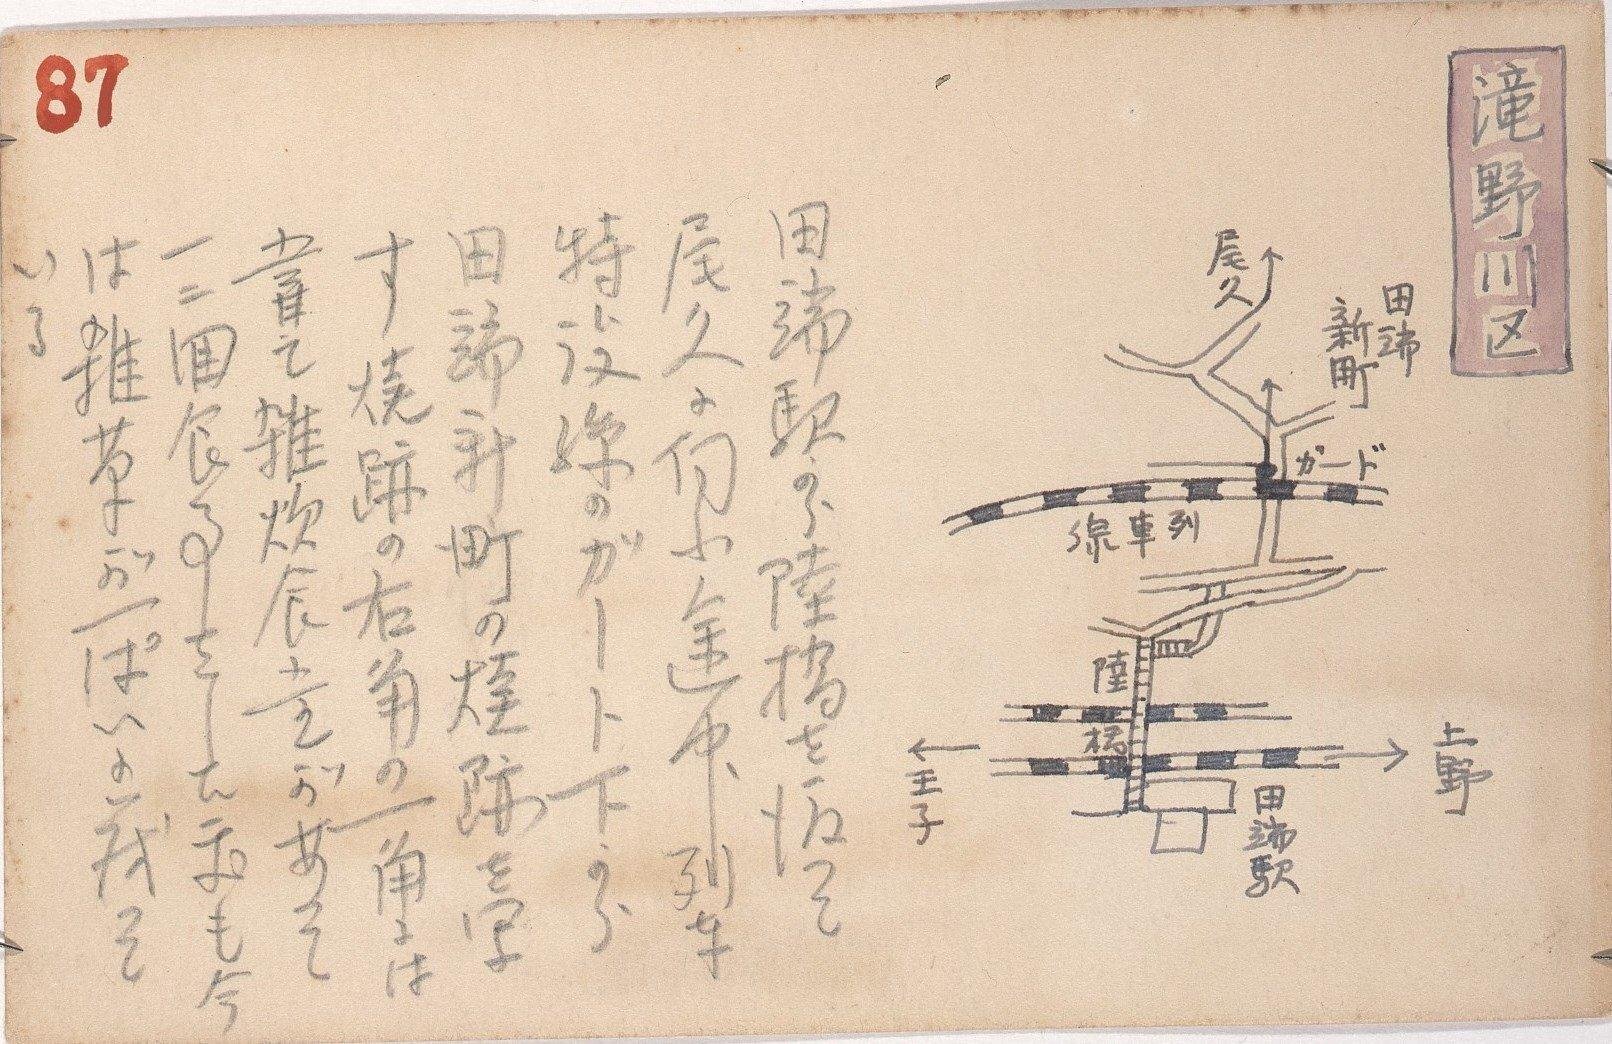 87
滝野川区
田端
新町
尾久
ガード
列車線
陸橋
上野
王子
田端駅
田端駅から陸橋を渡って
尾久に向ふ途中列車
特設線のガード下から
田端新町の焼跡を写
す焼跡の右角の一角には
曽て雑炊食堂があって
一二回食事をした処も今
は雑草が一ぱいに茂って
いる